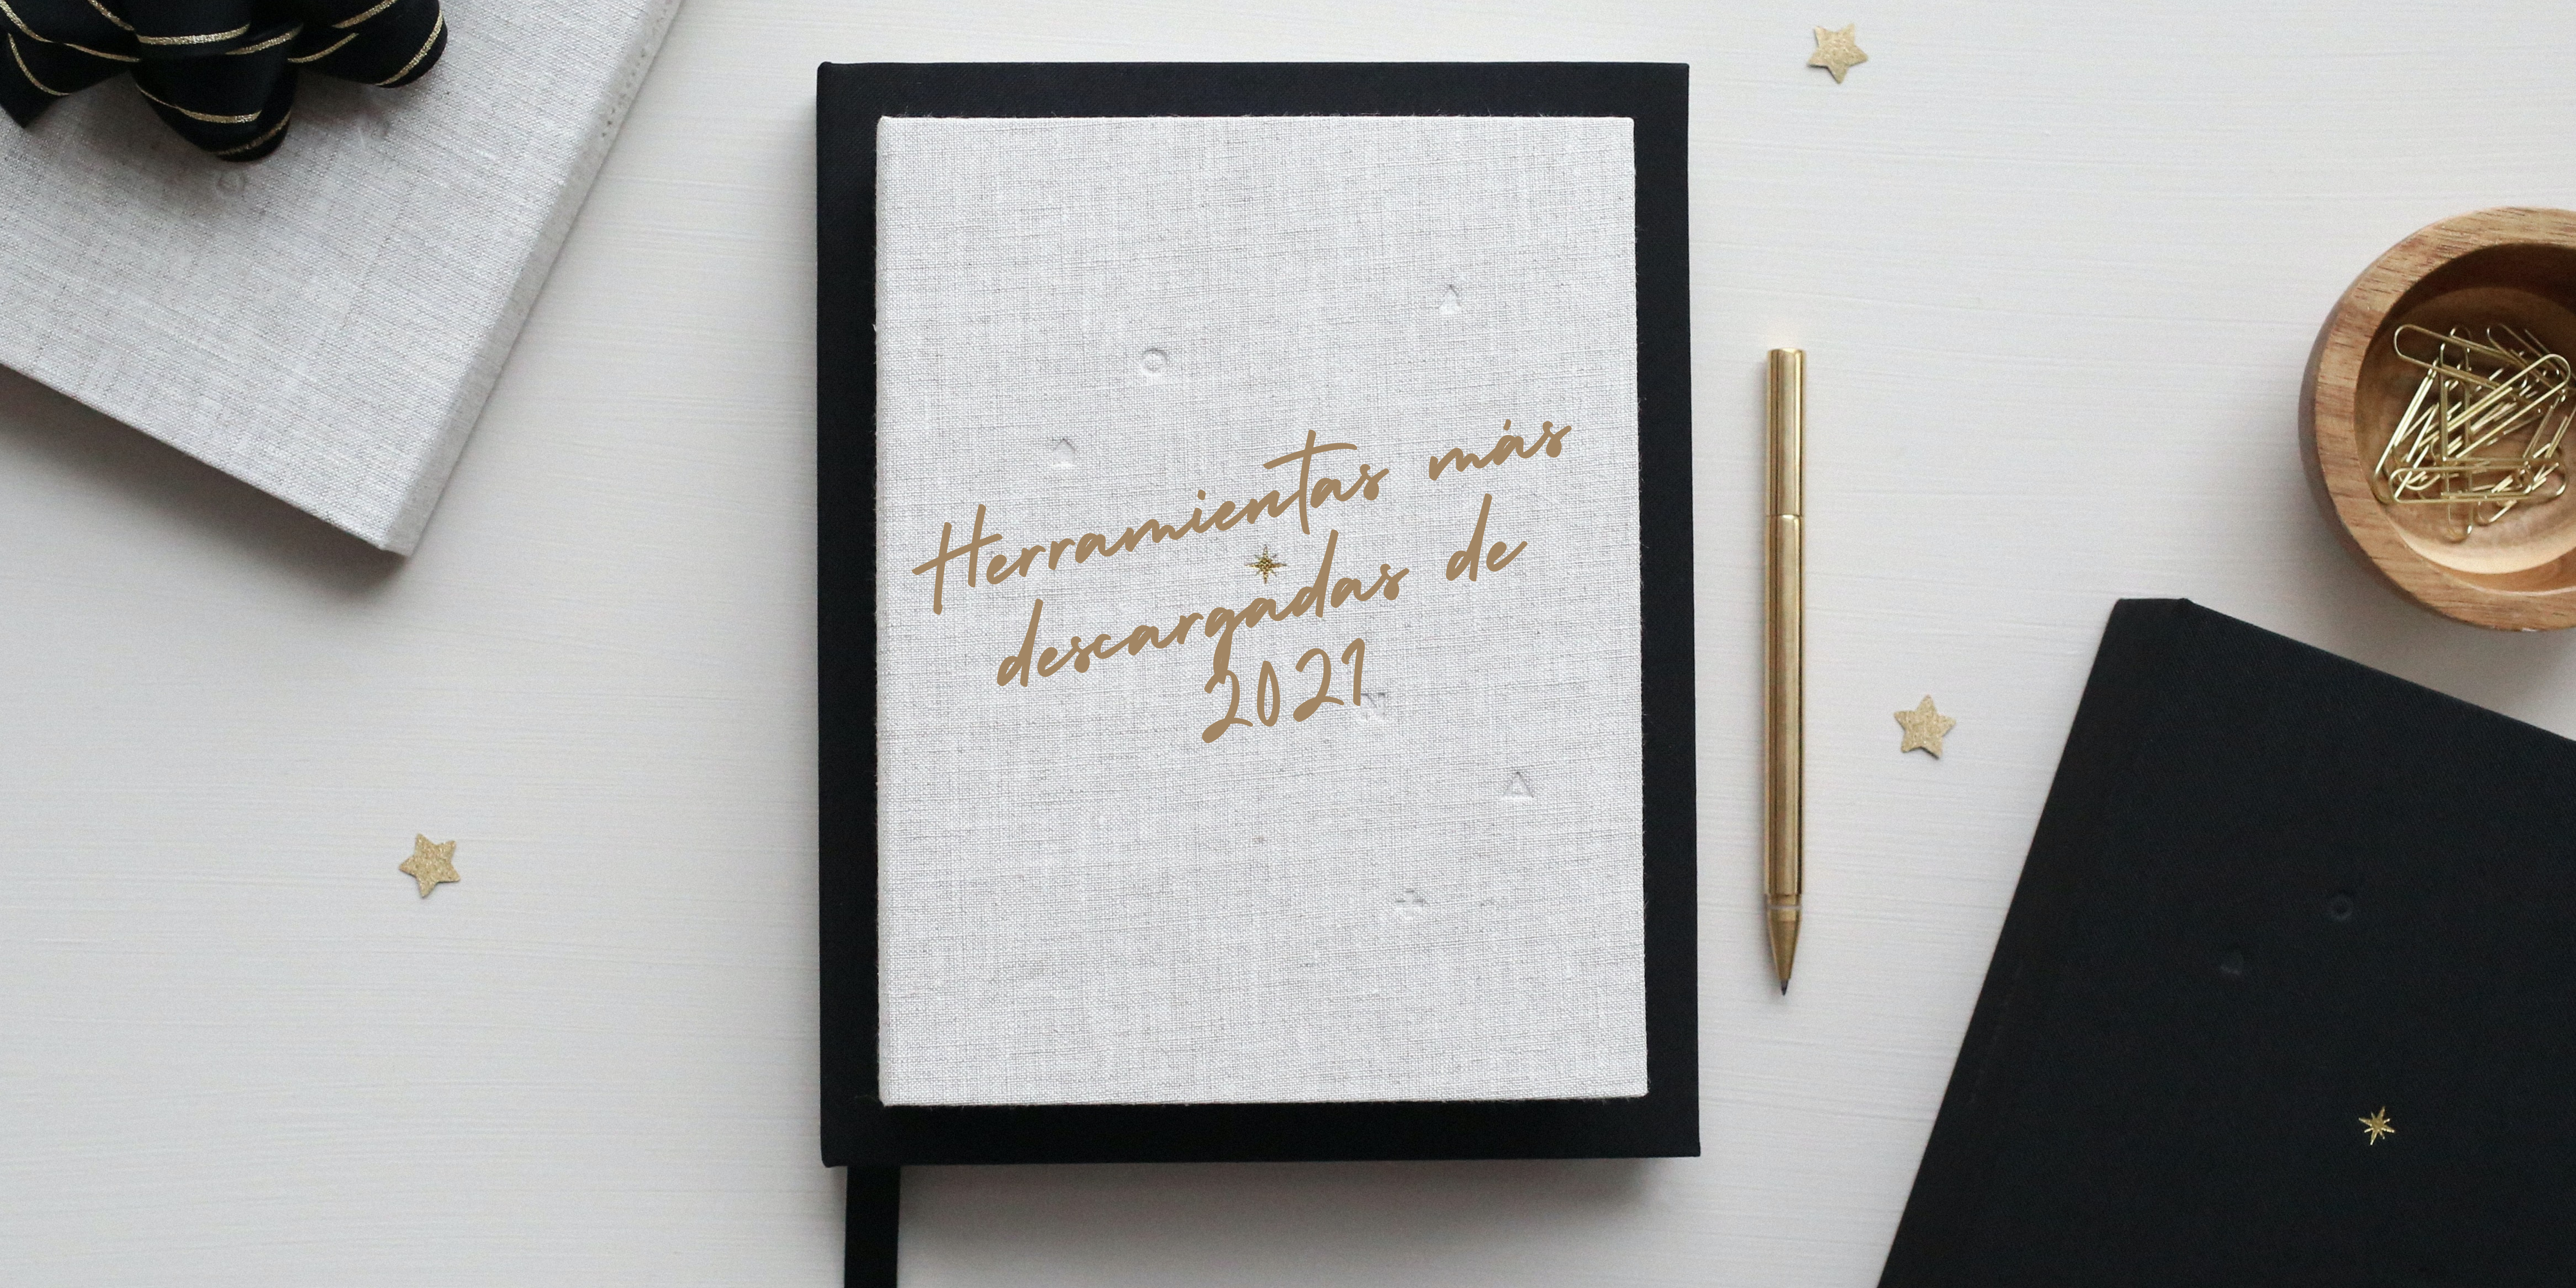 Herramientas más
descargadas de
2021